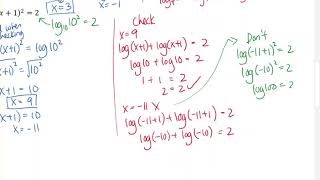 x + 1)² = 2
x = 3
when
checking
log₁₀10² = 2
(x+1)² = log10²
(x+1)² = √10²
x+1) = 10
x = 9
x+1) = 10
x = -11
x = -1
Check
x = 9
log(x+1) + log(x+1) = 2
log10 + log10 = 2
1 + 1 = 2
2 = 2 ✓
x = -11 X
log(-11+1) + log(-11+1) = 2
log(-10) + log(-10) = 2
Don't
log(-11+1)² = 2
log(-10)² = 2
log100 = 2